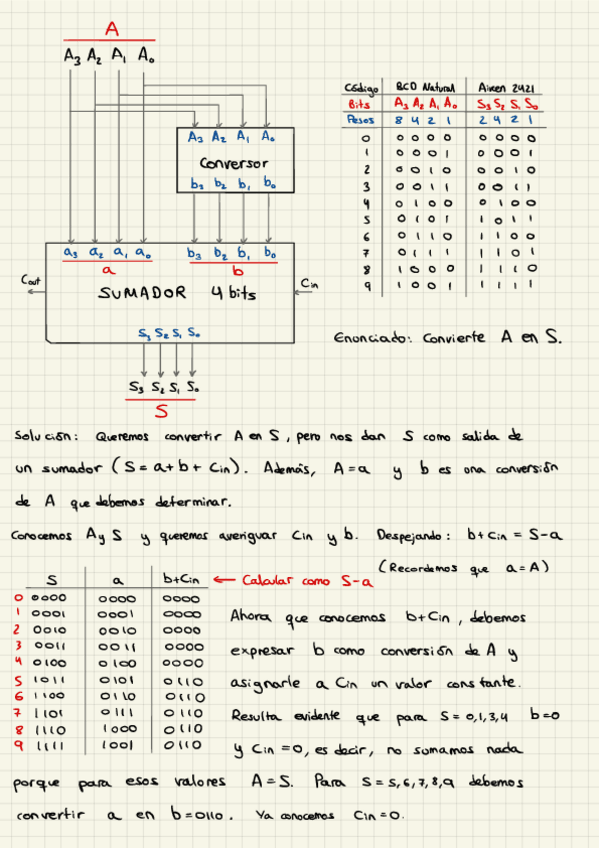 A
A3 A2 A1 A0
A3 A2 A1 A0
Conversor
b3 b2 b1 b0
a3 a2 a1 a0 b3 b2 b1 b0
a b
Cout SUMADOR 4 bits Cin
S3 S2 S1 S0
S3 S2 S1 S0
S
Código BCD Natural Aiken 2421
Bits A3 A2 A1 A0 S3 S2 S1 S0
Pesos 8 4 2 1 2 4 2 1
0 0 0 0 0 0 0 0 0
1 0 0 0 1 0 0 0 1
2 0 0 1 0 0 0 1 0
3 0 0 1 1 0 0 1 1
4 0 1 0 0 0 1 0 0
5 0 1 0 1 1 0 1 1
6 0 1 1 0 1 1 0 0
7 0 1 1 1 1 1 0 1
8 1 0 0 0 1 1 1 0
9 1 0 0 1 1 1 1 1
Enunciado: Convierte A en S.
Solución: Queremos convertir A en S, pero nos dan S como salida de
un sumador (S = a + b + Cin). Además, A = a y b es una conversión
de A que debemos determinar.
Conocemos A y S y queremos averiguar Cin y b. Despejando: b + Cin = S - a
(Recordemos que a = A)
S a b+Cin ← Calcular como S-a
0 0000 0000 0000
1 0001 0001 0000
2 0010 0010 0000
3 0011 0011 0000
4 0100 0100 0000
5 1011 0101 0110
6 1100 0110 0110
7 1101 0111 0110
8 1110 1000 0110
9 1111 1001 0110
Ahora que conocemos b+Cin, debemos
expresar b como conversión de A y
asignarle a Cin un valor constante.
Resulta evidente que para S = 0,1,3,4 b=0
y Cin = 0, es decir, no sumamos nada
porque para esos valores A = S. Para S = 5,6,7,8,9 debemos
convertir a en b = 0110. Ya conocemos Cin = 0.